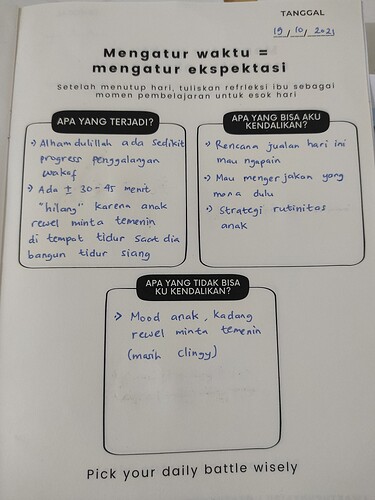 TANGGAL
19 / 10 / 2021
Mengatur waktu =
mengatur ekspektasi
Setelah menutup hari, tuliskan refrleksi ibu sebagai
momen pembelajaran untuk esok hari
APA YANG TERJADI?
Alhamdulillah ada sedikit
progress penggalangan
wakaf
Ada ± 30-45 menit
"hilang" karena anak
rewel minta temenin
di tempat tidur saat dia
bangun tidur siang
APA YANG BISA AKU
KENDALIKAN?
Rencana jualan hari ini
mau ngapain
Mau mengerjakan yang
mana dulu
Strategi rutinitas
anak
APA YANG TIDAK BISA
KU KENDALIKAN?
Mood anak, kadang
rewel minta temenin
(masih clingy)
Pick your daily battle wisely